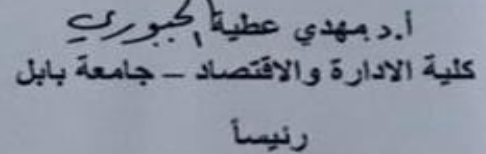 أ.د مهدي عطية الجبوري
كلية الادارة والاقتصاد – جامعة بابل
رئيساً